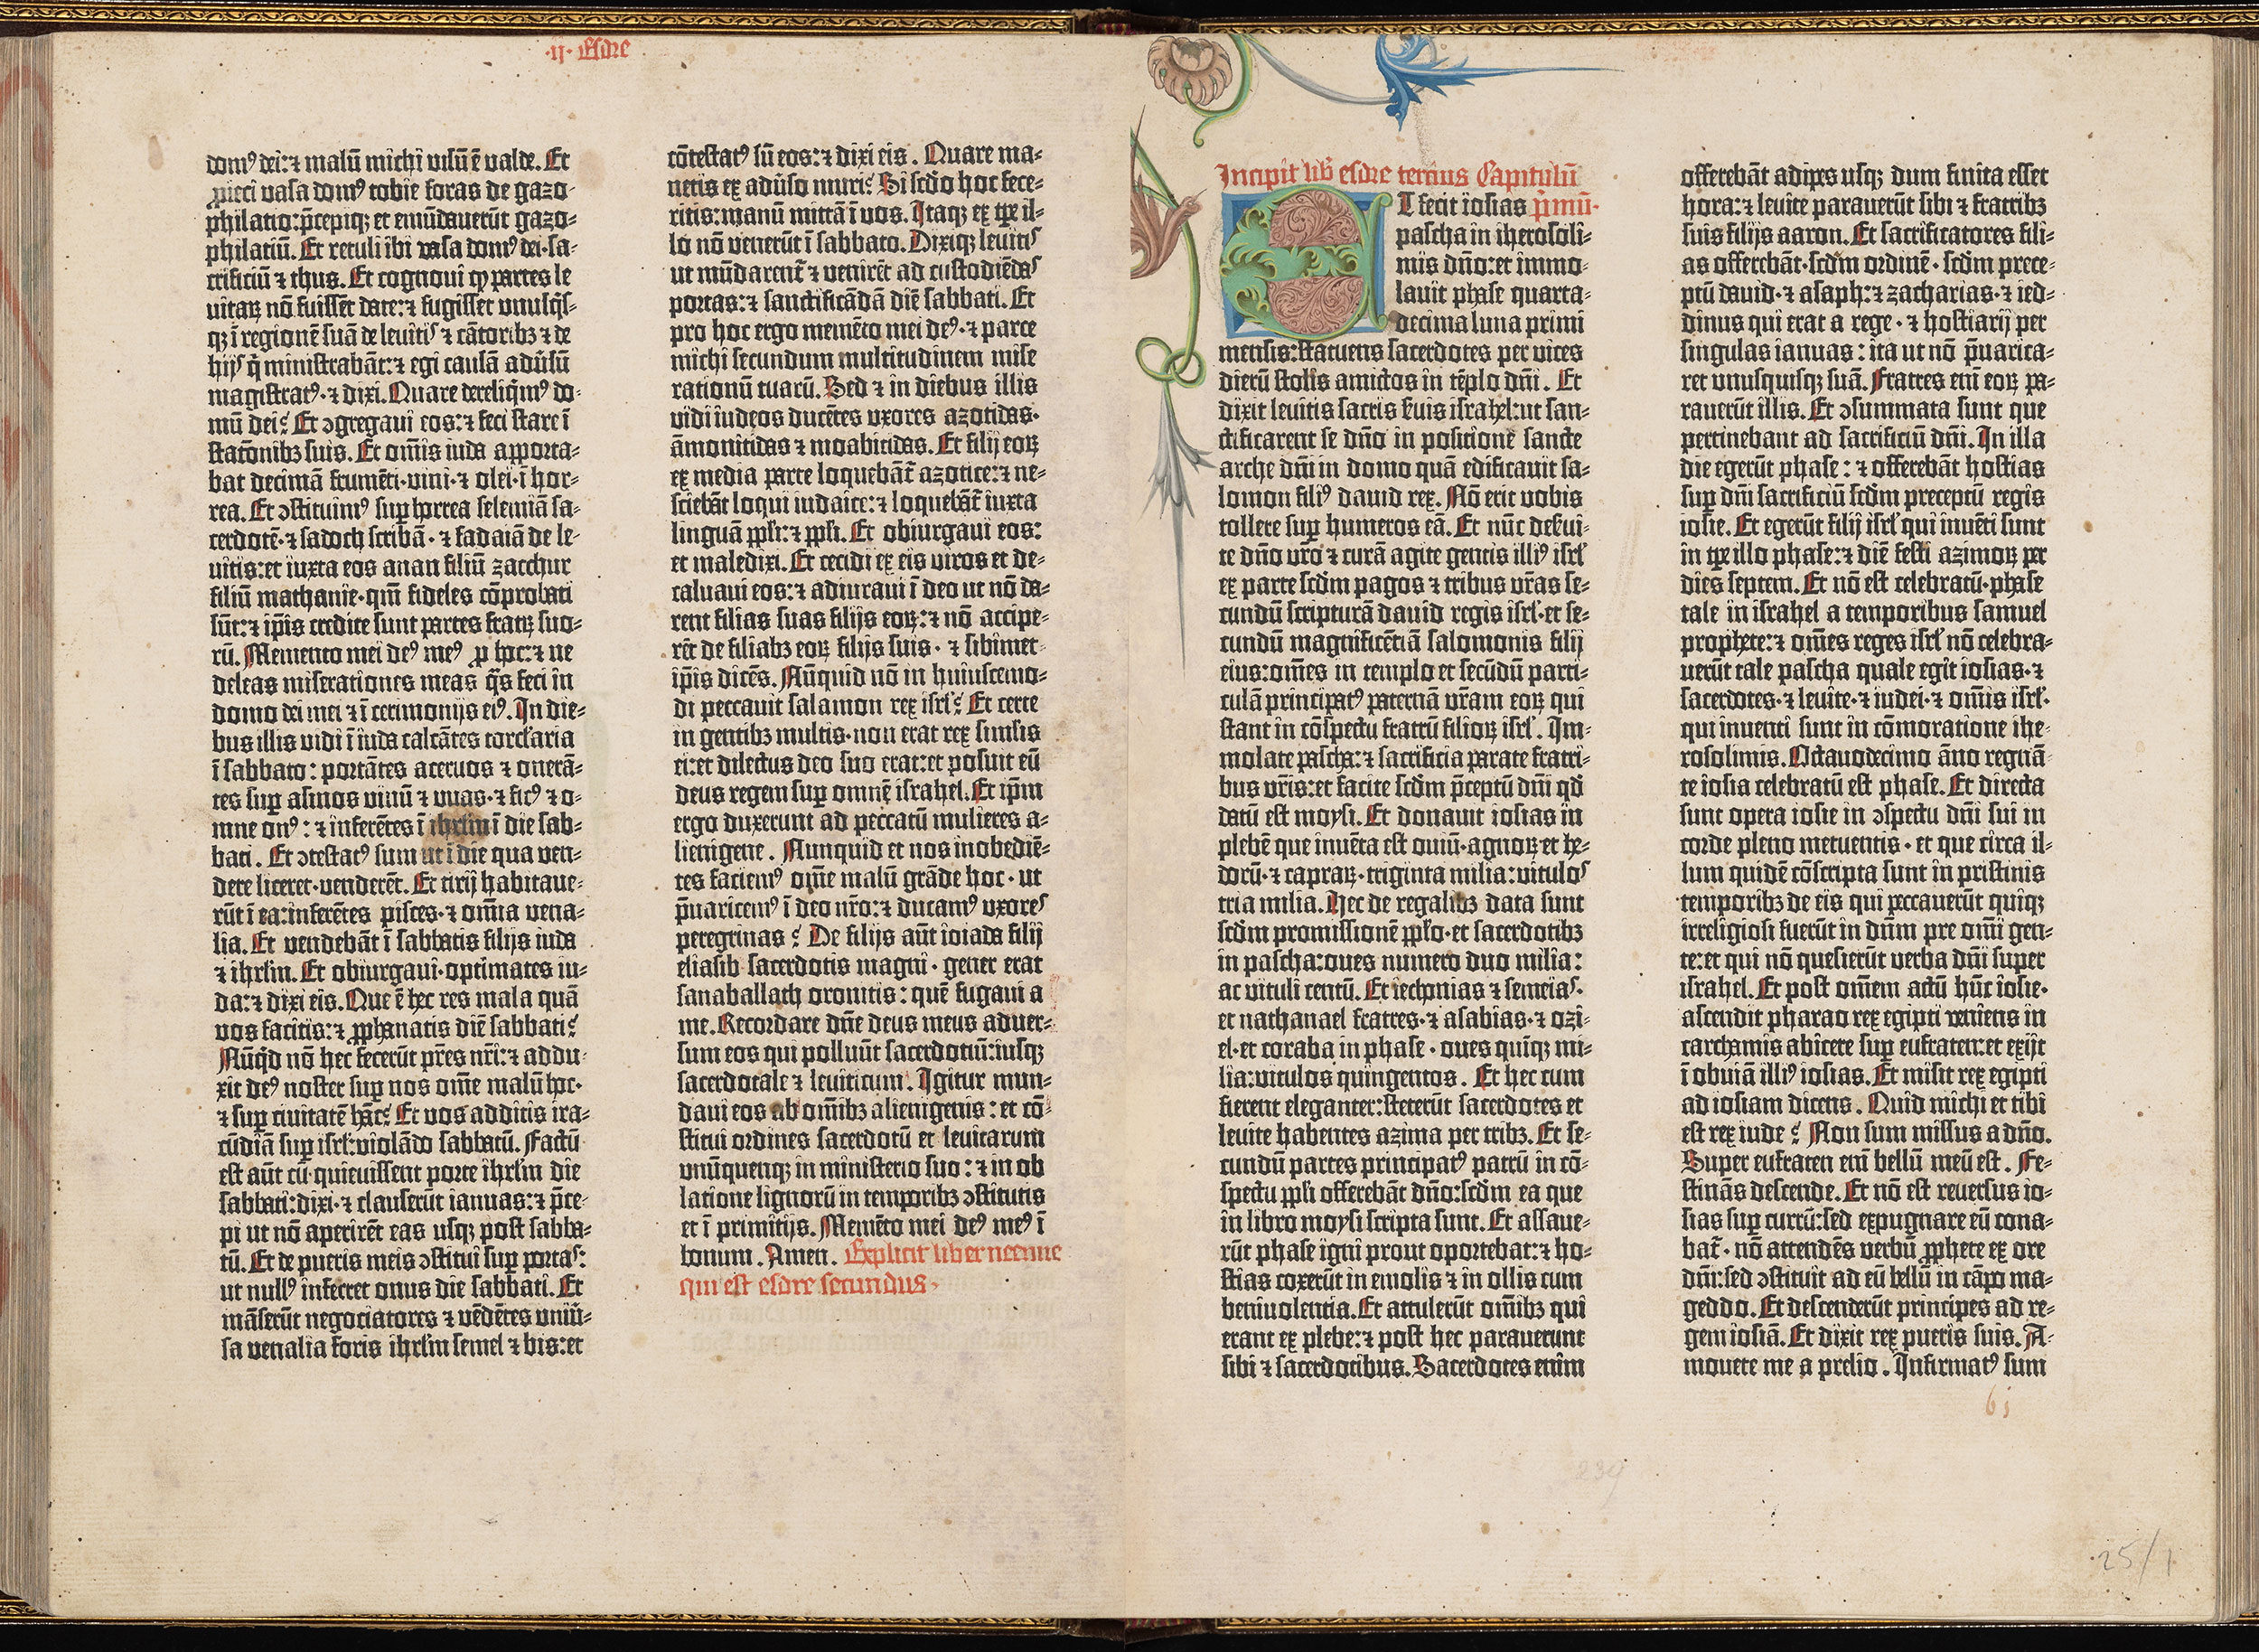 ·ij· Esdre
domꝰ dei:⁊ malū michi visū ē valde. Et
ꝓieci vasa domꝰ tobie foras de gazo-
philatio:p̄cepiqꝫ et emūdauerūt gazo-
philatiū. Et retuli ibi vasa domꝰ dei·sa-
crificiū ⁊ thus. Et cognoui ꝙ partes le
uitaꝝ nō fuissēt date:⁊ fugisset vnusq̄s-
qꝫ ī regionē suā de leuitis ⁊ cātoribꝫ ⁊ de
hijs q̄ ministrabāt:⁊ egi causā adūsū
magistratꝰ·⁊ dixi. Quare dereliq̄mꝰ do-
mū dei? Et ɔgregaui eos:⁊ feci stare ī
statōnibꝫ suis. Et om̄is iuda apporta-
bat decimā frumēti·vini·⁊ olei·ī hor-
rea. Et ɔstituimꝰ suꝑ horrea selemiā sa-
cerdotē·⁊ sadoch scribā·⁊ fadaiā de le-
uitis:et iuxta eos anan filiū zacchur
filiū mathanie·qm̄ fideles cōprobati
sūt:⁊ ip̄is credite sunt partes fratꝝ suo-
rū. Memento mei deꝰ meꝰ ꝓ hoc:⁊ ne
deleas miserationes meas q̄s feci in
domo dei mei ⁊ ī cerimonijs eiꝰ. In die-
bus illis vidi ī iuda calcātes torcl'aria
ī sabbato: portātes aceruos ⁊ onerā-
tes suꝑ asinos vinū ⁊ vuas·⁊ ficꝰ ⁊ o-
mne onꝰ:⁊ inferētes ī ihrl'm ī die sab-
bati. Et ɔtestatꝰ sum ut ī die qua ven-
dere liceret·venderēt. Et tirij habitaue-
rūt ī ea:inferētes pisces·⁊ om̄ia vena-
lia. Et vendebāt ī sabbatis filijs iuda
⁊ ihrl'm. Et obiurgaui·optimates iu-
da:⁊ dixi eis. Que ē hec res mala quā
vos facitis:⁊ ꝓphanatis diē sabbati?
Nūq̄d nō hec fecerūt pr̄es nr̄i:⁊ addu-
xit deꝰ noster suꝑ nos om̄e malū hoc·
⁊ suꝑ ciuitatē hāc? Et vos additis ira-
cūdiā suꝑ isrl':violādo sabbatū. Factū
est aūt cū·quieuissent porte ihrl'm die
sabbati:dixi·⁊ clauserūt ianuas:⁊ p̄ce-
pi ut nō aperirēt eas usqꝫ post sabba-
tū. Et de pueris meis ɔstitui suꝑ portas:
ut nullꝰ inferret onus die sabbati. Et
māserūt negociatores ⁊ vēdētes vniū-
sa venalia foris ihrl'm semel ⁊ bis:et
cōtestatꝰ sū eos:⁊ dixi eis. Quare ma-
netis ex adūso muri? Si scd̄o hoc fece-
ritis:manū mittā ī vos. Itaqꝫ ex tꝑe il-
lo nō venerūt ī sabbato. Dixiqꝫ leuitis
ut mūdarent᷑ ⁊ venirēt ad custodiēdas
portas:⁊ sanctificādā diē sabbati. Et
pro hoc ergo memēto mei deꝰ·⁊ parce
michi secundum multitudinem mise
rationū tuarū. Sed ⁊ in diebus illis
vidi iudeos ducētes vxores azotidas·
āmonitidas ⁊ moabitidas. Et filij eoꝝ
ex media parte loquebāt᷑ azotice:⁊ ne-
sciebāt loqui iudaice:⁊ loquebāt᷑ iuxta
linguā ppl'i:⁊ ppl'i. Et obiurgaui eos:
et maledixi. Et cecidi ex eis viros et de-
caluaui eos:⁊ adiuraui ī deo ut nō da-
rent filias suas filijs eoꝝ:⁊ nō accipe-
rēt de filiabꝫ eoꝝ filijs suis·⁊ sibimet-
ip̄is dicēs. Nūquid nō in huiuscemo-
di peccauit salamon rex isrl'? Et certe
in gentibꝫ multis·non erat rex similis
ei:et dilectus deo suo erat:et posuit eū
deus regem suꝑ omnē israhel. Et ip̄m
ergo duxerunt ad peccatū mulieres a-
lienigene. Nunquid et nos inobediē-
tes faciemꝰ om̄e malū grāde hoc·ut
p̄uaricemꝰ ī deo nr̄o:⁊ ducamꝰ vxores
peregrinas? De filijs aūt ioiada filij
eliasib sacerdotis magni·gener erat
sanaballath oronitis:quē fugaui a
me. Recordare dn̄e deus meus aduer-
sum eos qui polluūt sacerdotiū:iusqꝫ
sacerdotale ⁊ leuiticum. Igitur mun-
daui eos ab om̄ibꝫ alienigenis:et cō-
stitui ordines sacerdotū et leuitarum
vnūquenqꝫ in ministerio suo:⁊ in ob
latione lignorū in temporibꝫ ɔstitutis
et ī primitijs. Memēto mei deꝰ meꝰ ī
bonum. Amen. Explicit liber neemie
qui est esdre secundus.
Incipit lib̄ esdre tercius Capitulū
ET fecit iosias p̄mū·
pascha in iherosoli-
mis dn̄o:et immo-
lauit phase quarta-
decima luna primi
mensis:statuens sacerdotes per vices
dierū stolis amictos in tēplo dn̄i. Et
dixit leuitis sacris s̄uis israhel:ut san-
ctificarent se dn̄o in positione sancte
arche dn̄i in domo quā edificauit sa-
lomon filiꝰ dauid rex. Nō erit vobis
tollere suꝑ humeros eā. Et nūc des̄ui-
te dn̄o vr̄o ⁊ curā agite gentis illiꝰ isrl'
ex parte scd̄m pagos ⁊ tribus vr̄as se-
cundū scripturā dauid regis isrl'·et se-
cundū magnificētiā salomonis filij
eius:om̄es in templo et secūdū parti-
culā principatꝰ paternā vr̄am eoꝝ qui
stant in cōspectu fratrū filioꝝ isrl'. Im-
molate pascha:⁊ sacrificia parate fratri-
bus vr̄is:et facite scd̄m p̄ceptū dn̄i qd̄
datū est moysi. Et donauit iosias in
plebē que inuēta est ouiū·agnoꝝ et he-
dorū·⁊ capraꝝ·triginta milia:vitulos
tria milia. Hec de regalibꝫ data sunt
scd̄m promissionē ppl'o·et sacerdotibꝫ
in pascha:oues numero duo milia:
ac vituli centū. Et iechonias ⁊ semeias·
et nathanael fratres·⁊ asabias·⁊ ozi-
el·et coraba in phase·oues quīqꝫ mi-
lia:vitulos quingentos. Et hec cum
fierent eleganter:steterūt sacerdotes et
leuite habentes azima per tribꝫ. Et se-
cundū partes principatꝰ patrū in cō-
spectu ppl'i offerebāt dn̄o:scd̄m ea que
in libro moysi scripta sunt. Et assaue-
rūt phase igni prout oportebat:⁊ ho-
stias coxerūt in emolis ⁊ in ollis cum
beniuolentia. Et attulerūt om̄ibꝫ qui
erant ex plebe:⁊ post hec parauerunt
sibi ⁊ sacerdotibus. Sacerdotes enim
offerebāt adipes usqꝫ dum finita esset
hora:⁊ leuite parauerūt sibi ⁊ fratribꝫ
suis filijs aaron. Et sacrificatores fili-
as offerebāt·scd̄m ordinē·scd̄m prece-
ptū dauid·⁊ asaph:⁊ zacharias·⁊ ied-
dinus qui erat a rege·⁊ hostiarij per
singulas ianuas:ita ut nō p̄uarica-
ret vnusquisqꝫ suā. Fratres eni̅ eoꝝ pa-
rauerūt illis. Et ɔsummata sunt que
pertinebant ad sacrificiū dn̄i. In illa
die egerūt phase:⁊ offerebāt hostias
suꝑ dn̄i sacrificiū scd̄m preceptū regis
iosie. Et egerūt filij isrl' qui inuēti sunt
in tꝑe illo phase:⁊ diē festi azimoꝝ per
dies septem. Et nō est celebratū·phase
tale in israhel a temporibus samuel
prophete:⁊ om̄es reges isrl' nō celebra-
uerūt tale pascha quale egit iosias·⁊
sacerdotes·⁊ leuite·⁊ iudei·⁊ om̄is isrl'·
qui inuenti sunt in cōmoratione ihe-
rosolimis. Octauodecimo āno regnā-
te iosia celebratū est phase. Et directa
sunt opera iosie in ɔspectu dn̄i sui in
corde pleno metuentis·et que circa il-
lum quidē cōscripta sunt in pristinis
temporibꝫ de eis qui peccauerūt quiqꝫ
irreligiosi fuerūt in dn̄m pre om̄i gen-
te:et qui nō quesierūt verba dn̄i super
israhel. Et post om̄em actū hūc iosie·
ascendit pharao rex egipti veniens in
carchamis abicere suꝑ eufraten:et exijt
ī obuiā illiꝰ iosias. Et misit rex egipti
ad iosiam dicens. Quid michi et tibi
est rex iude? Non sum missus a dn̄o.
Super eufraten eni̅ bellū meū est. Fe-
stinās descende. Et nō est reuersus io-
sias suꝑ currū:sed expugnare eū cona-
bat᷑·nō attendēs verbū ꝓphete ex ore
dn̄i:sed ɔstituit ad eū bellū in cāpo ma-
geddo. Et descenderūt principes ad re-
gem iosiā. Et dixit rex pueris suis. A-
mouete me a prelio. Infirmatꝰ sum
239
25/1